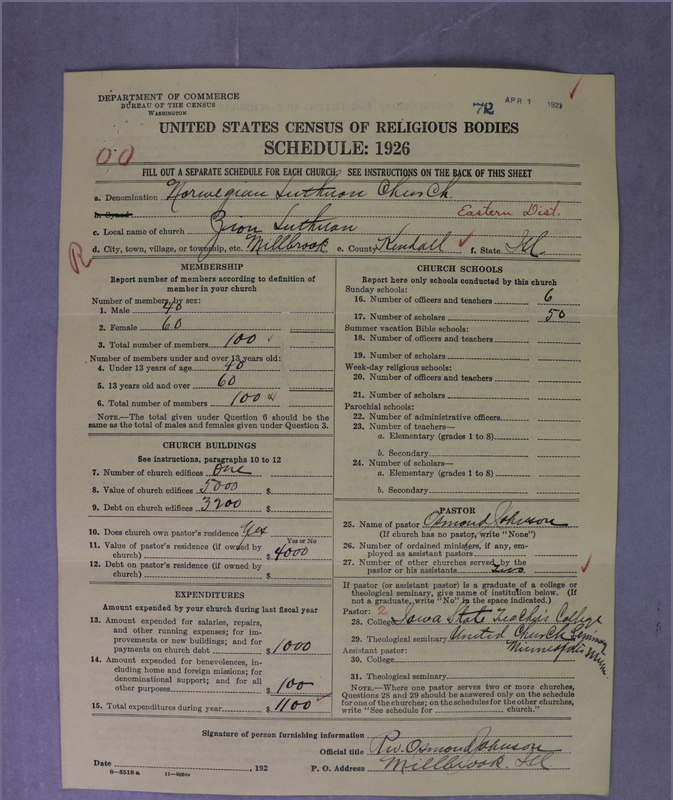 DEPARTMENT OF COMMERCE
BUREAU OF THE CENSUS
WASHINGTON
72 APR 1 1927
UNITED STATES CENSUS OF RELIGIOUS BODIES
SCHEDULE: 1926
00
FILL OUT A SEPARATE SCHEDULE FOR EACH CHURCH. SEE INSTRUCTIONS ON THE BACK OF THIS SHEET
a. Denomination Norwegian Luthran Church.
b. Synod Eastern Dist.
c. Local name of church Zion Luthran
d. City, town, village, or township, etc. Millbrook e. County Kendall f. State Ill.
R
MEMBERSHIP
Report number of members according to definition of
member in your church
Number of members by sex:
1. Male 40
2. Female 60
3. Total number of members 100
Number of members under and over 13 years old:
4. Under 13 years of age 40
5. 13 years old and over 60
6. Total number of members 100
NOTE.—The total given under Question 6 should be the
same as the total of males and females given under Question 3.
CHURCH BUILDINGS
See instructions, paragraphs 10 to 12
7. Number of church edifices One
8. Value of church edifices 5000 $
9. Debt on church edifices 3200 $
10. Does church own pastor's residence Yes
Yes or No
11. Value of pastor's residence (if owned by
church) $ 4000
12. Debt on pastor's residence (if owned by
church) $
EXPENDITURES
Amount expended by your church during last fiscal year
13. Amount expended for salaries, repairs,
and other running expenses; for im-
provements or new buildings; and for
payments on church debt $ 1000
14. Amount expended for benevolences, in-
cluding home and foreign missions; for
denominational support; and for all
other purposes $ 100
15. Total expenditures during year $ 1100
CHURCH SCHOOLS
Report here only schools conducted by this church
Sunday schools:
16. Number of officers and teachers 6
17. Number of scholars 50
Summer vacation Bible schools:
18. Number of officers and teachers
19. Number of scholars
Week-day religious schools:
20. Number of officers and teachers
21. Number of scholars
Parochial schools:
22. Number of administrative officers
23. Number of teachers—
a. Elementary (grades 1 to 8)
b. Secondary
24. Number of scholars—
a. Elementary (grades 1 to 8)
b. Secondary
PASTOR
25. Name of pastor Osmond Johnson
(If church has no pastor, write "None")
26. Number of ordained ministers, if any, em-
ployed as assistant pastors
27. Number of other churches served by the
pastor or his assistants two
If pastor (or assistant pastor) is a graduate of a college or
theological seminary, give name of institution below. (If
not a graduate, write "No" in the space indicated.)
Pastor: 2
28. College Iowa State Teachers College
29. Theological seminary United Church Seminary
Minneapolis Minn.
Assistant pastor:
30. College
31. Theological seminary
NOTE.—Where one pastor serves two or more churches,
Questions 28 and 29 should be answered only on the schedule
for one of the churches; on the schedules for the other churches,
write "See schedule for church."
Signature of person furnishing information
Official title Rev. Osmond Johnson
Date , 192 P. O. Address Millbrook. Ill
8—5518a 11—9204